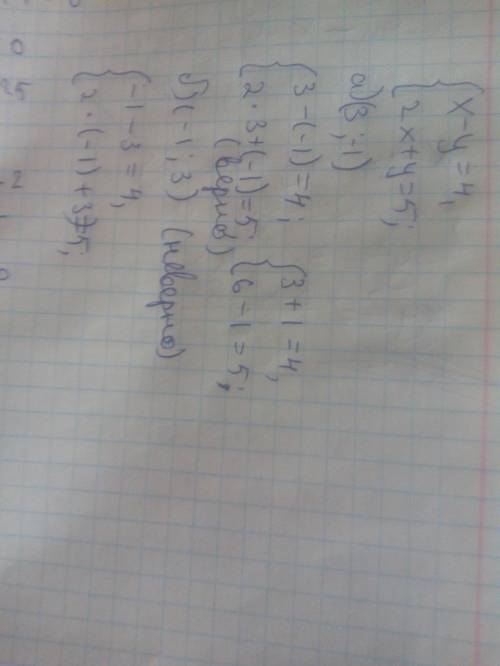 { x - y = 4,
{ 2x + y = 5;
а) (3; -1)
{ 3 - (-1) = 4; { 3 + 1 = 4,
{ 2 · 3 + (-1) = 5; { 6 - 1 = 5;
(верно)
б) (-1; 3) (неверно)
{ -1 - 3 = 4,
{ 2 · (-1) + 3 ≠ 5;
0
25
2